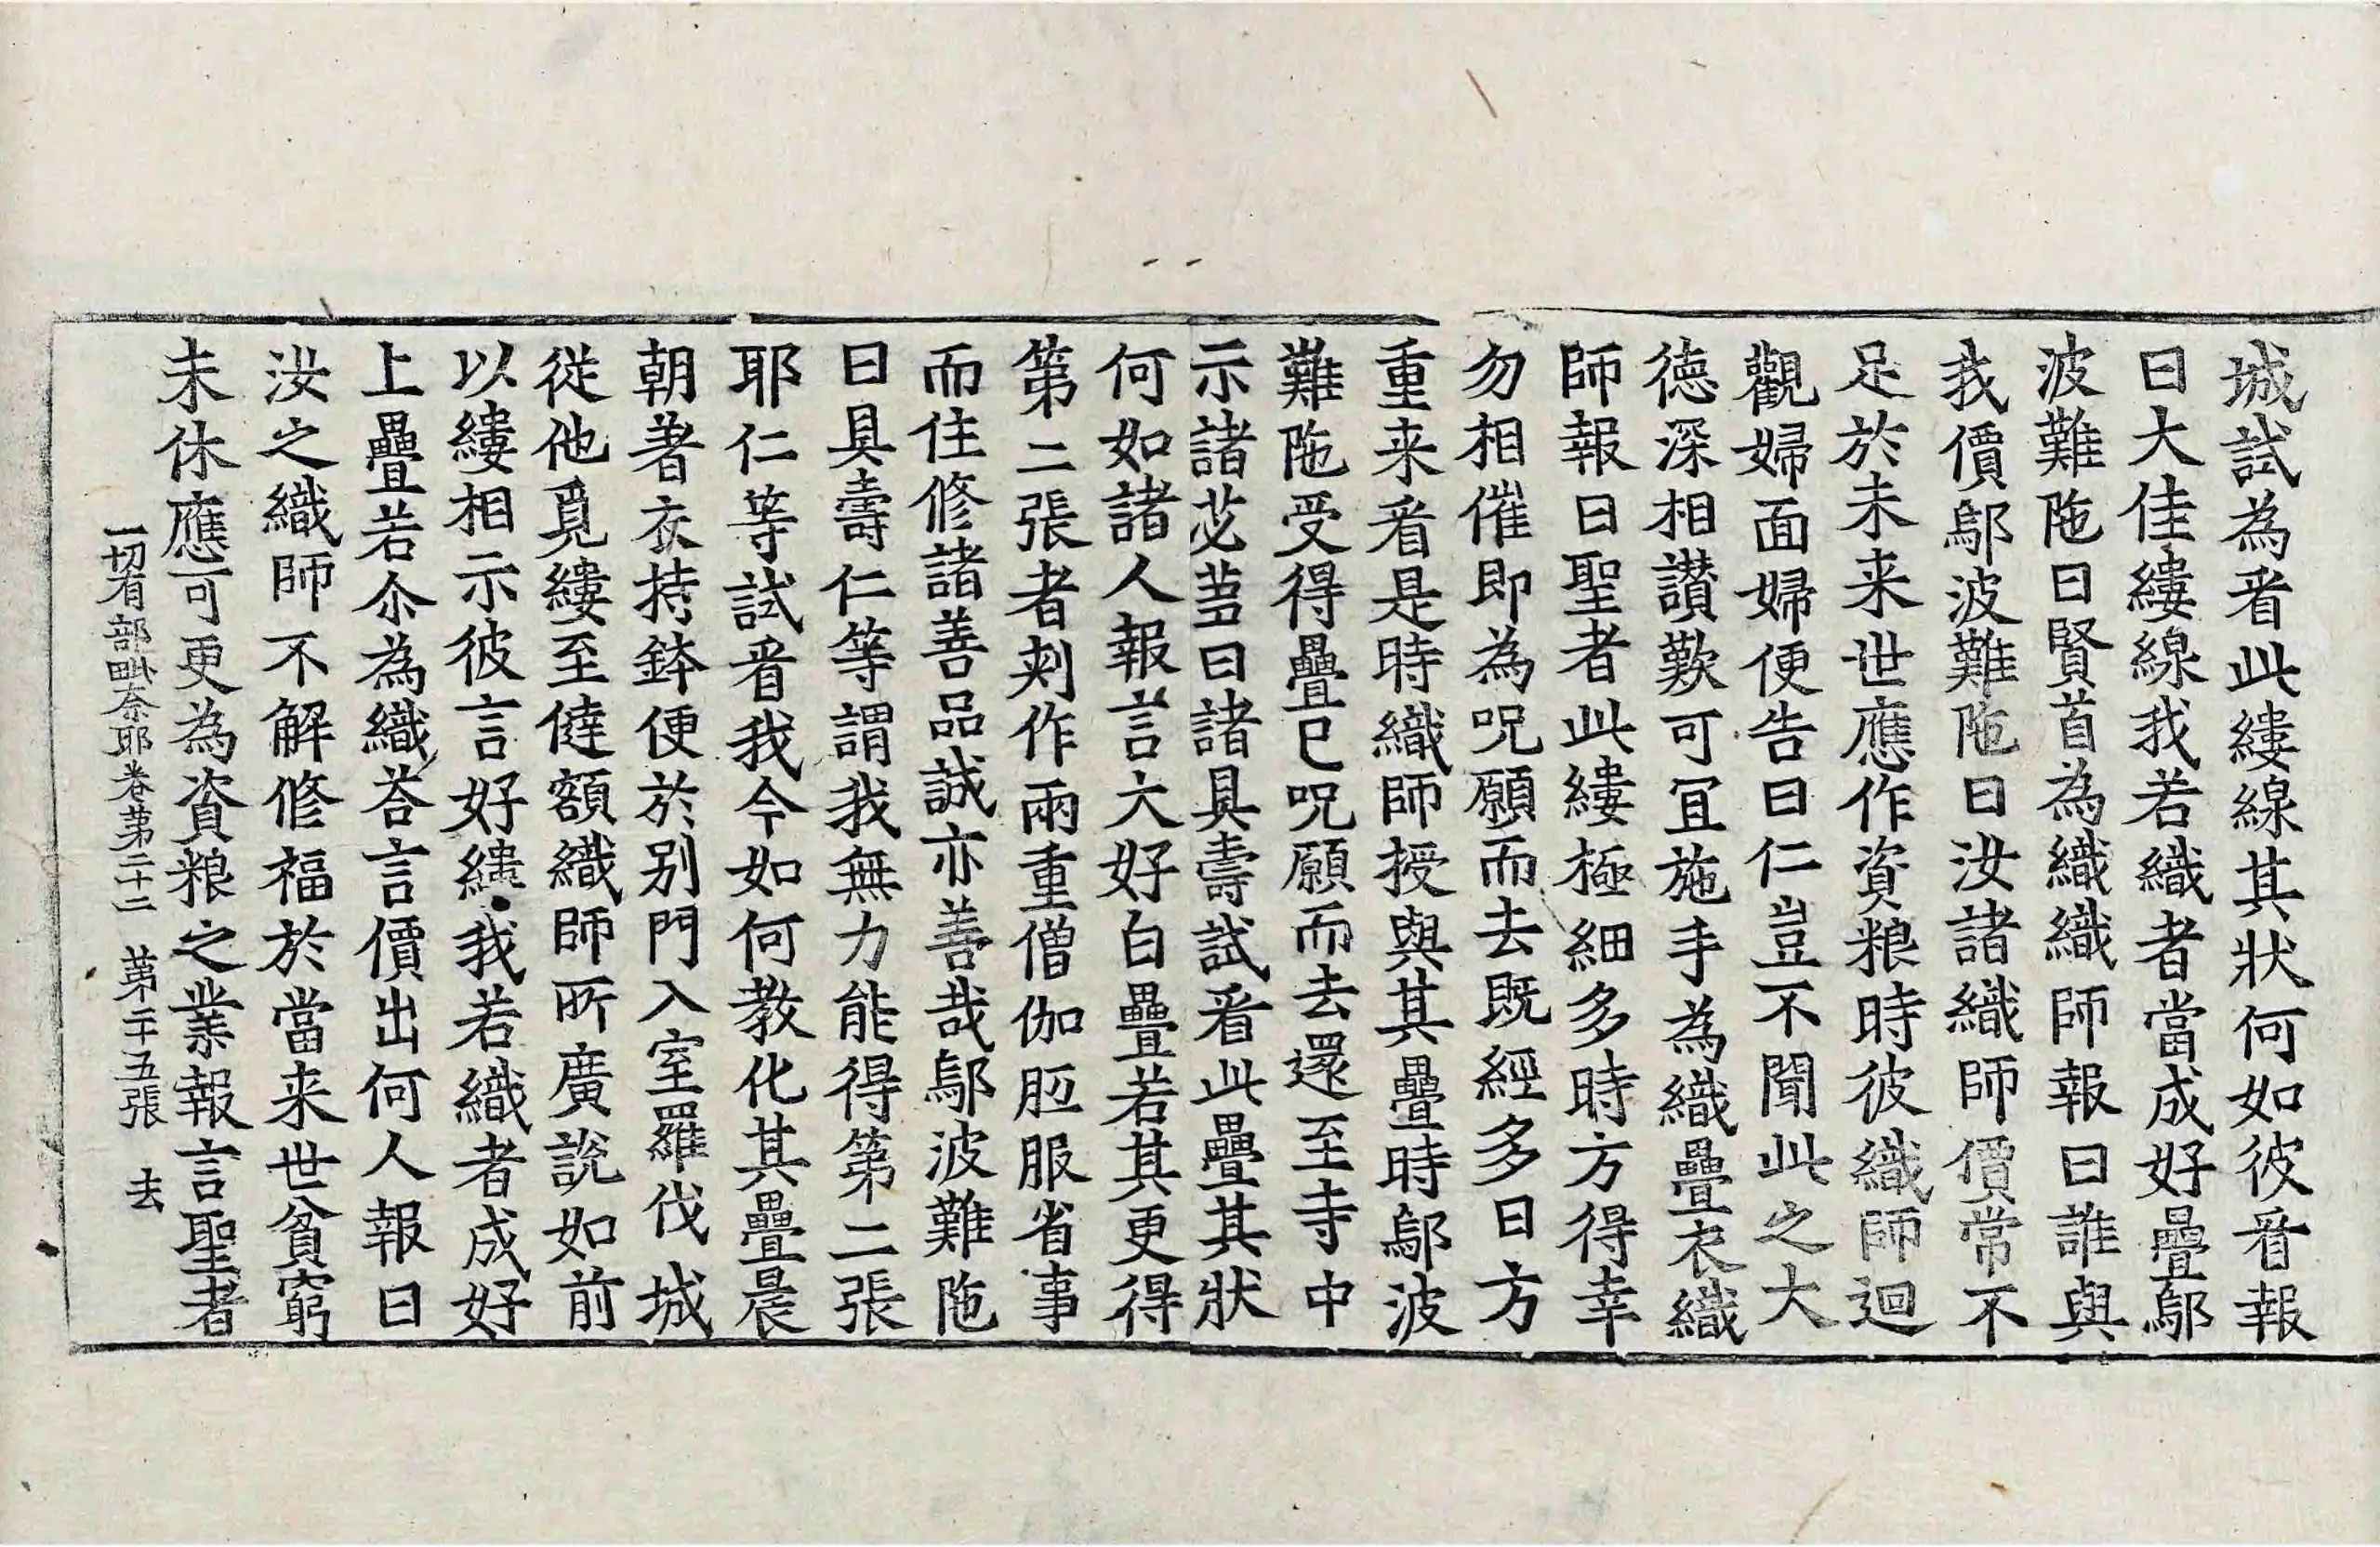 城試為看此縷線其狀何如彼看報
曰大佳縷線我若織者當成好疊鄔
波難陁曰賢首為織織師報曰誰與
我價鄔波難陁曰汝諸織師價常不
足於未来世應作資粮時彼織師迴
觀婦面婦便告曰仁豈不聞此之大
德深相讃歎可冝施手為織疊衣織
師報曰聖者此縷極細多時方得幸
勿相催即為呪願而去既經多日方
重来看是時織師授與其疊時鄔波
難陁受得疊已呪願而去還至寺中
示諸苾芻曰諸具壽試看此疊其狀
何如諸人報言大好白疊若其更得
第二張者刾作兩重僧伽胝服省事
而住修諸善品誠亦善哉鄔波難陁
曰具壽仁等謂我無力能得第二張
耶仁等試看我今如何教化其疊晨
朝著衣持鉢便於別門入室羅伐城
從他覓縷至傼額織師所廣說如前
以縷相示彼言好縷我若織者成好
上疊若尒為織荅言價出何人報曰
汝之織師不解修福於當来世貧窮
未休應可更為資粮之業報言聖者
一切有部毗奈耶卷第二十二 第二十五張 去